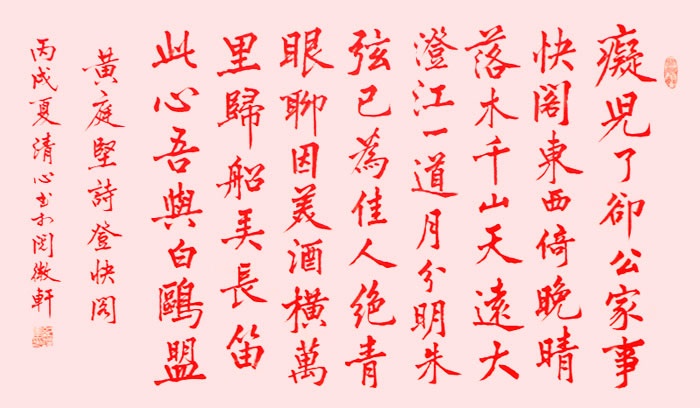 癡兒了卻公家事
快閣東西倚晚晴
落木千山天遠大
澄江一道月分明朱
弦已為佳人絕青
眼聊因美酒橫萬
里歸船弄長笛
此心吾與白鷗盟
黃庭堅詩登快閣
丙戌夏清心书於閱微軒